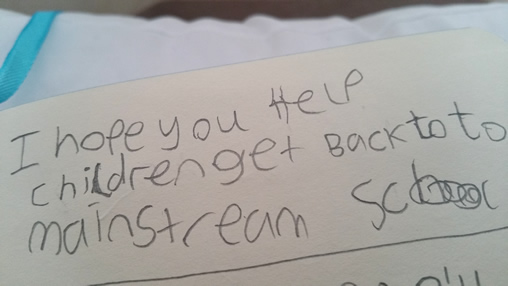 I hope you Help
children get Back to to
mainstream school